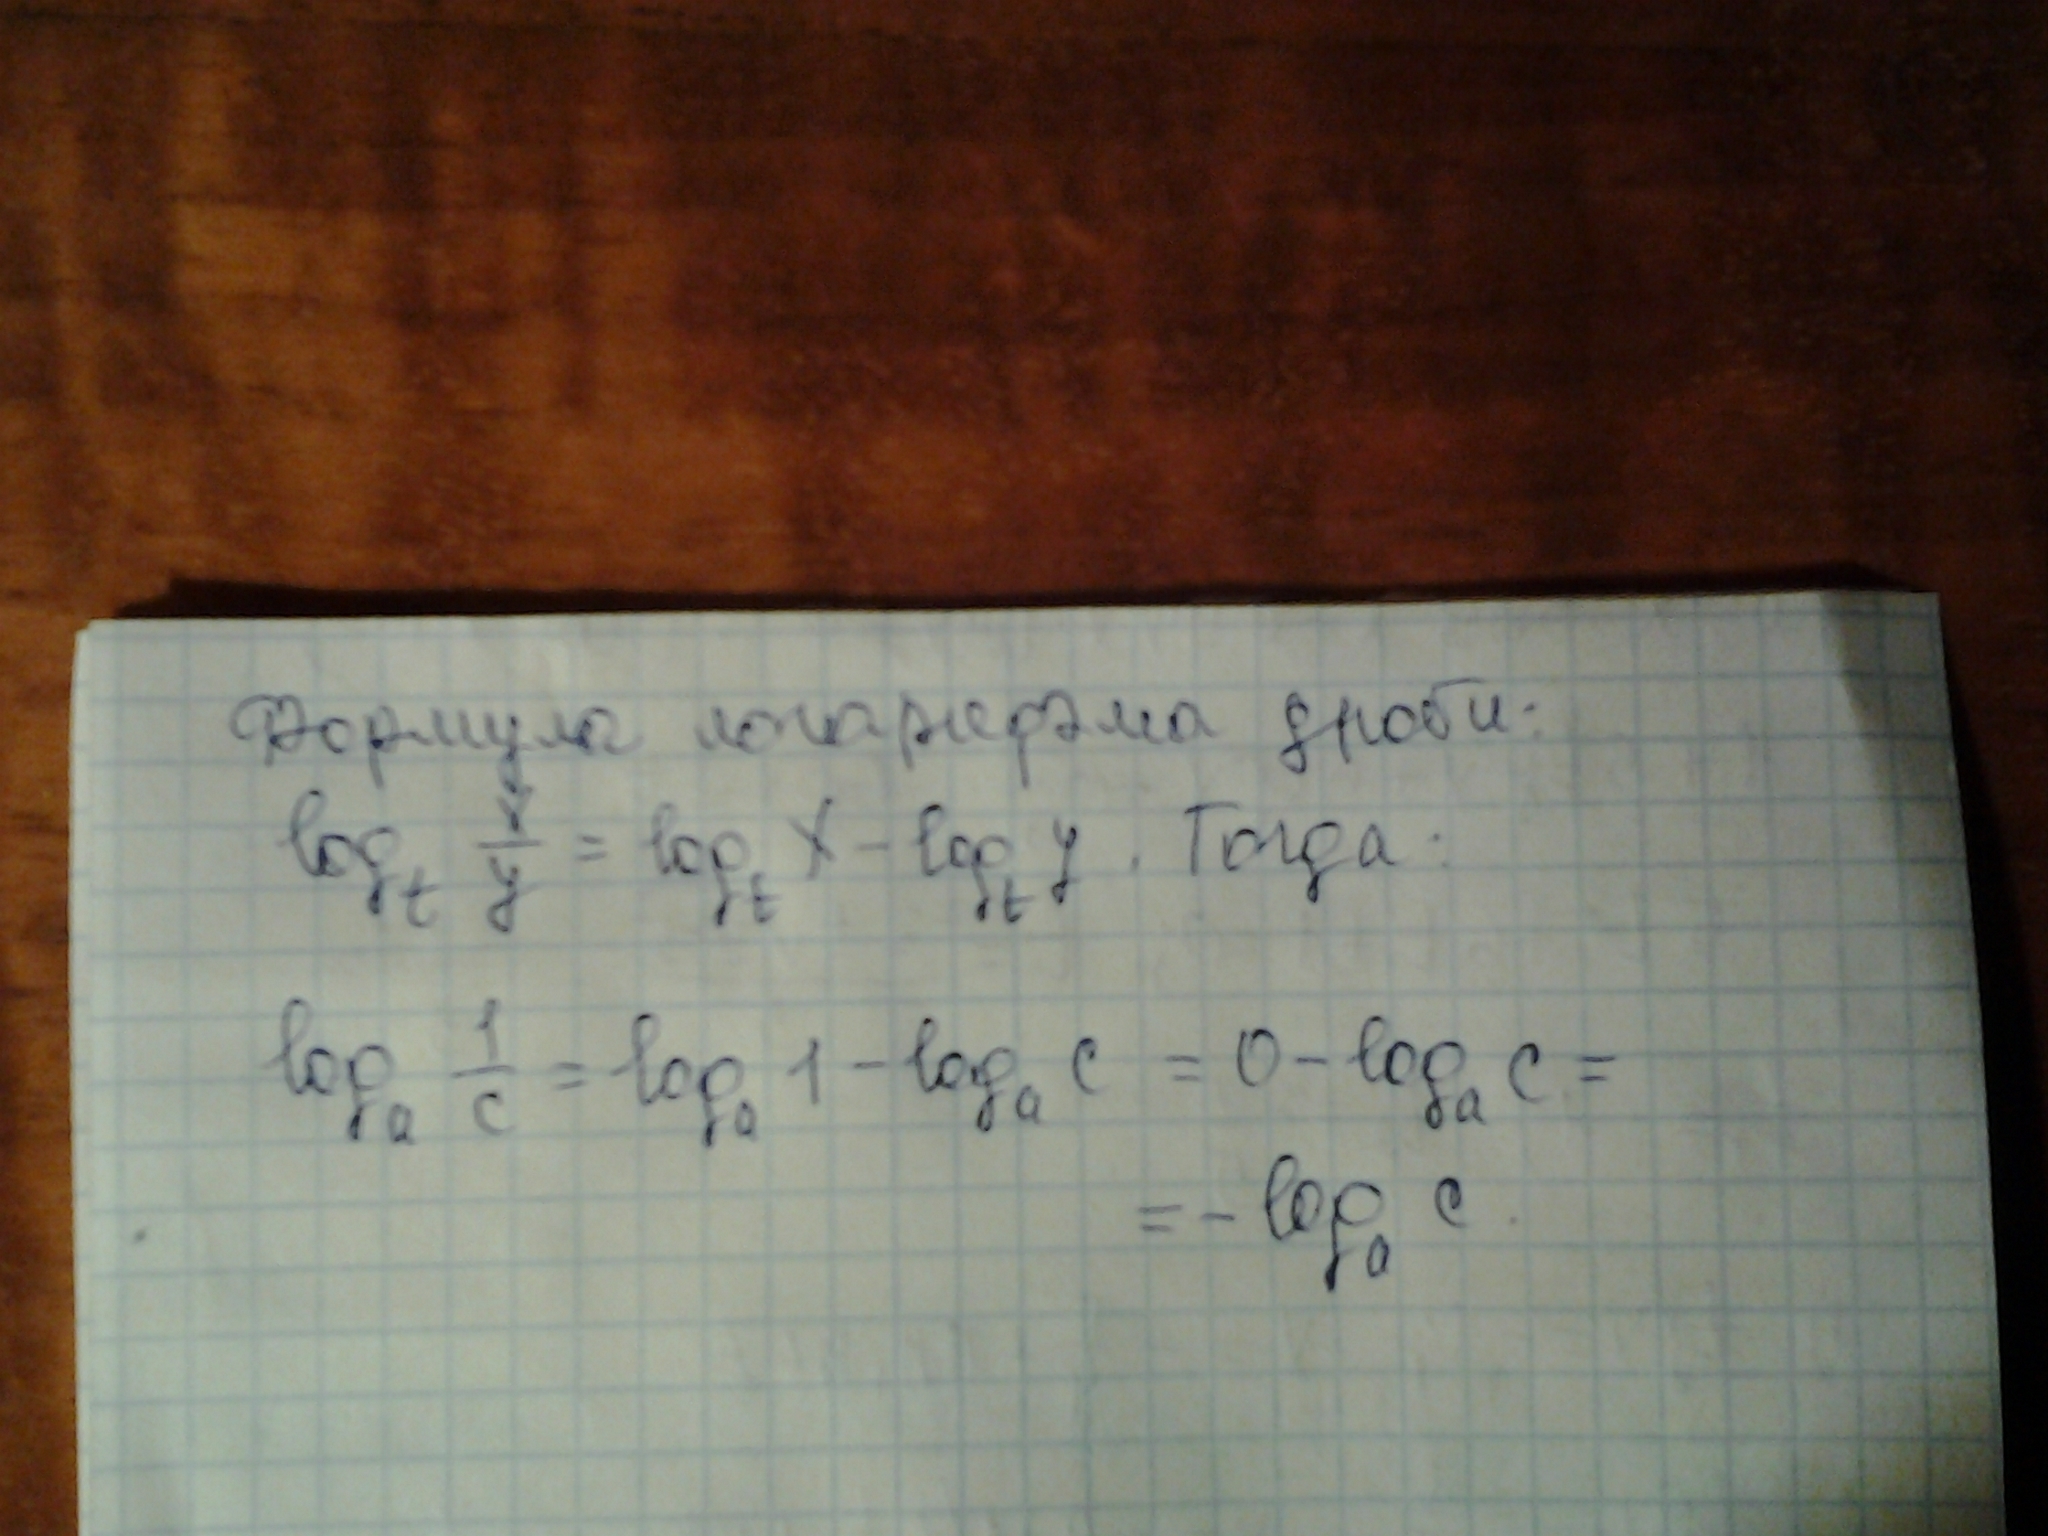 Формула логарифма дроби:
log_t x/y = log_t x − log_t y. Тогда:
log_a 1/c = log_a 1 − log_a c = 0 − log_a c =
= − log_a c.